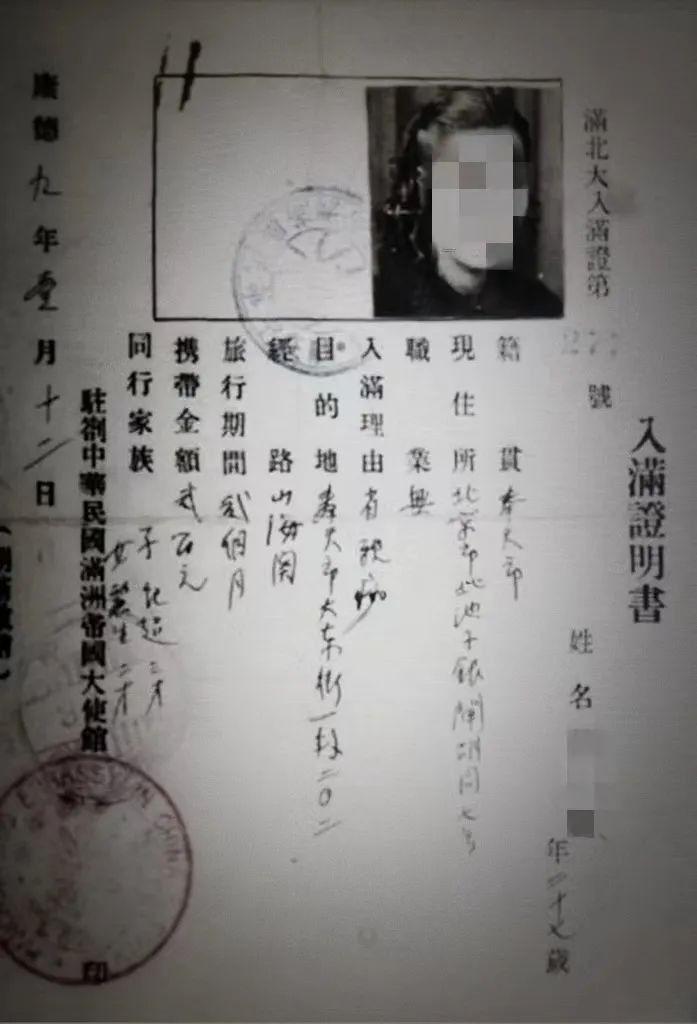 入滿證明書
滿北大入滿證第 277 號
姓名
年二十七歲
籍貫 奉天市
現住所 北京市北池子銀閘胡同七号
職業 無
入滿理由 省親
目的地 奉天市大東街一段二〇二
經路 山海関
旅行期間 貳個月
携帶金額 貳百元
同行家族 子 二才
女 二才
駐劄中華民國滿洲帝國大使館 印
康德九年壹月十二日
EMBASSY IN CHINA